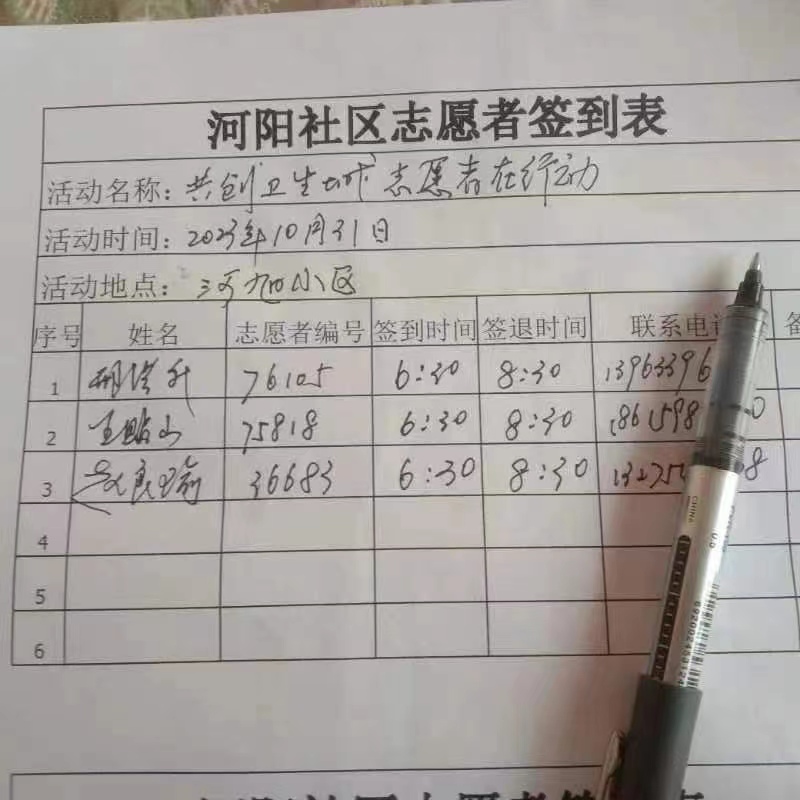 河阳社区志愿者签到表
活动名称：共创卫生城 志愿者在行动
活动时间：2023年10月31日
活动地点：河旭小区
序号 姓名 志愿者编号 签到时间 签退时间 联系电 备
1 76105 6:30 8:30 13963396
2 山 75818 6:30 8:30 1861598 0
3 良瑜 36683 6:30 8:30 13275 8
4
5
6
CHINA